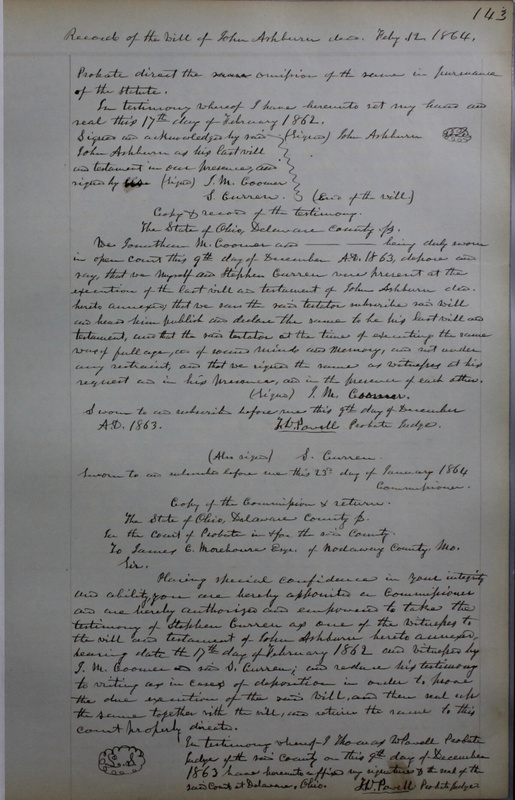 143
Record of the Will of John Ashburn dec. Feby 12. 1864.
Probate direct the same omission of the same in pursuance
of the Statute.
In testimony whereof I have hereunto set my hand and
seal this 17th day of February 1862.
Signed and acknowledged by said (Signed) John Ashburn
John Ashburn as his last will
and testament in our presence, and
signed by (Signed) J. M. Coomer
S. Curren. (End of the will)
Copy & record of the testimony.
The State of Ohio, Delaware County ss.
We Jonathan M. Coomer and ——— being duly sworn
in open Court this 9th day of December A.D. 1863, depose and
say, that we myself and Stephen Curren were present at the
execution of the last will and testament of John Ashburn dec.
hereto annexed; that we saw the said testator subscribe said will
and heard him publish and declare the same to be his last will and
testament, and that the said testator at the time of executing the same
was of full age, and of sound mind and memory, and not under
any restraint, and that we signed the same as witnesses at his
request and in his presence, and in the presence of each other.
(Signed) J. M. Coomer.
Sworn to and subscribed before me this 9th day of December
A.D. 1863. T.W. Powell Probate Judge.
(Also signed) S. Curren.
Sworn to and subscribed before me this 23d day of January 1864
Commissioner.
Copy of the Commission & return.
The State of Ohio, Delaware County ss.
In the Court of Probate in & for the said County.
To James C. Morehouse Esqr. of Nodaway County, Mo.
Sir.
Placing special confidence in your integrity
and ability, you are hereby appointed a Commissioner
and are hereby authorized and empowered to take the
testimony of Stephen Curren as one of the witnesses to
the will and testament of John Ashburn hereto annexed,
bearing date the 17th day of February 1862 and witnessed by
J. M. Coomer and said S. Curren; and reduce his testimony
to writing as in cases of deposition in order to prove
the due execution of the said Will, and then seal up
the same together with the will, and return the same to this
court properly directed.
In testimony whereof I Thomas W Powell Probate
Judge of the said County on this 9th day of December
1863 have hereunto affixed my signature & the seal of the
said Court at Delaware, Ohio. T.W. Powell Probate Judge.